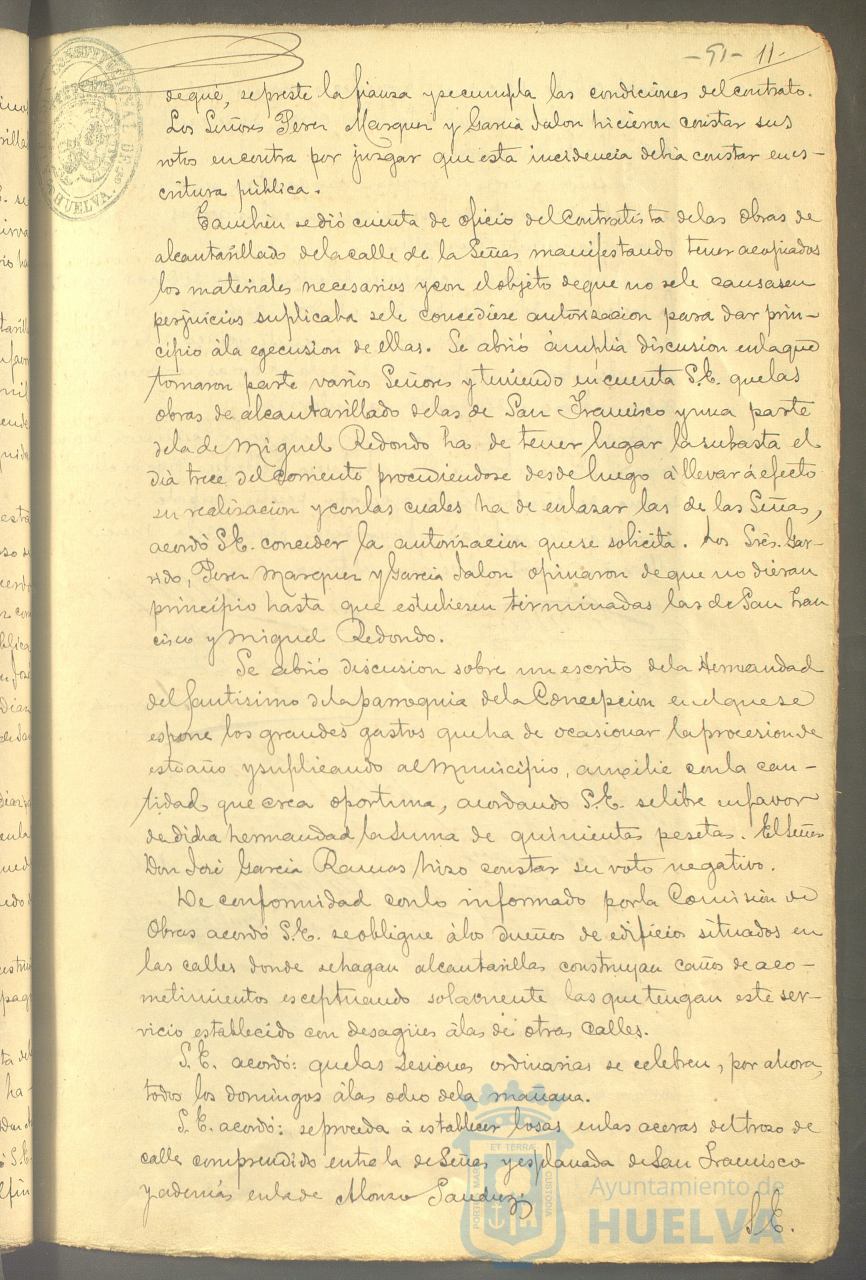 -51- 11-
CONSTITUCIONAL DE
HUELVA.
deque, sepreste la fianza y secumpla las condiciones delcontrato.
Los Señores Perez Marquez y Garcia Jalon hicieron constar sus
votos encontra por juzgar que esta incidencia debia constar enes-
critura pública.
Tambien sedió cuenta de oficio delContratista delas obras de
alcantarillado delacalle de la Señas manifestando tener acopiados
los materiales necesarios ycon elobjeto deque no sele causasen
perjuicios suplicaba sele concediese autorizacion para dar prin-
cipio ála egecusion de ellas. Se abrió ámplia discusion enlaque
tomaron parte varios Señores y teniendo encuenta S.E. quelas
obras de alcantarillado delas de San Francisco yuna parte
dela de Miguel Redondo ha de tener lugar lasubasta el
dia trece delCorriente procediendose desdeluego á llevar á efecto
su realizacion yconlas cuales ha de enlazar las de las Señas,
acordó S.E. conceder la autorizacion quese solicita. Los Srês. Gar-
rido, Perez Marquez y Garcia Jalon opinaron deque no dieran
principio hasta que estubiesen terminadas las deSan Fran
cisco y Miguel Redondo.
Se abrió discusion sobre unescrito dela Hermandad
delSantisimo dela parroquia dela Concepcion enelquese
espone los grandes gastos queha de ocasionar laprocesionde
esteaño ysuplicando alMunicipio, auxilie conla can-
tidad que crea oportuna, acordando S.E. selibre enfavor
dedicha hermandad lasuma de quinientas pesetas. ElSeñor
Don José Garcia Ramos hizo constar su voto negativo.
De conformidad conlo informado porla Comision de
Obras acordó S.E. seobligue álos dueños de edificios situados en
las calles donde sehagan alcantarillas construyan caños de aco-
metimientos esceptuando solamente las quetengan este ser-
vicio establecido con desagües álas de otras calles.
S.E. acordó: quelas sesiones ordinarias se celebren, por ahora,
todos los domingos álas ocho dela mañana.
S.E. acordó: seproceda á establecer losas enlas aceras deltrozo de
calle comprendido entre la deSeñas yesplanada deSan Francisco
yademás enlade Alonso Sanchez.
S.E.
ET TERRÆ
PORTUS MARIS
CUSTODIA
Ayuntamiento de
HUELVA